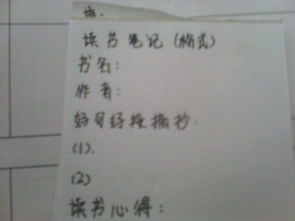 读书笔记（格式）
书名：
作者：
好句好段摘抄：
(1).
(2)
读书心得：